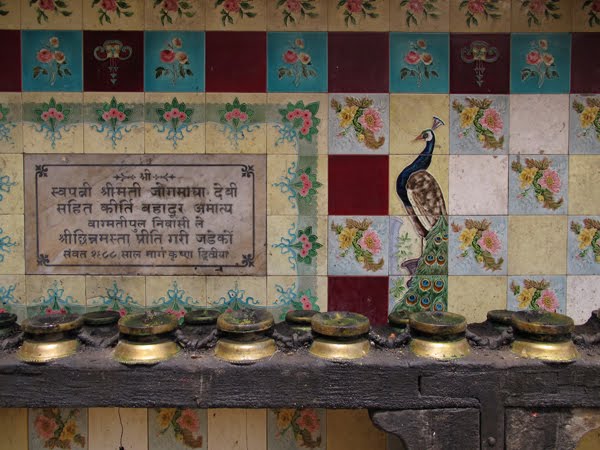 श्री
स्वपत्नी श्रीमती जोगमाया देवी
सहित कीर्ति बहादुर अमात्य
बागमतीपुल निवासी ले
श्रीछिन्नमस्ता प्रीति गरी जडेको
संवत १९८८ साल मार्ग कृष्ण द्वितीया